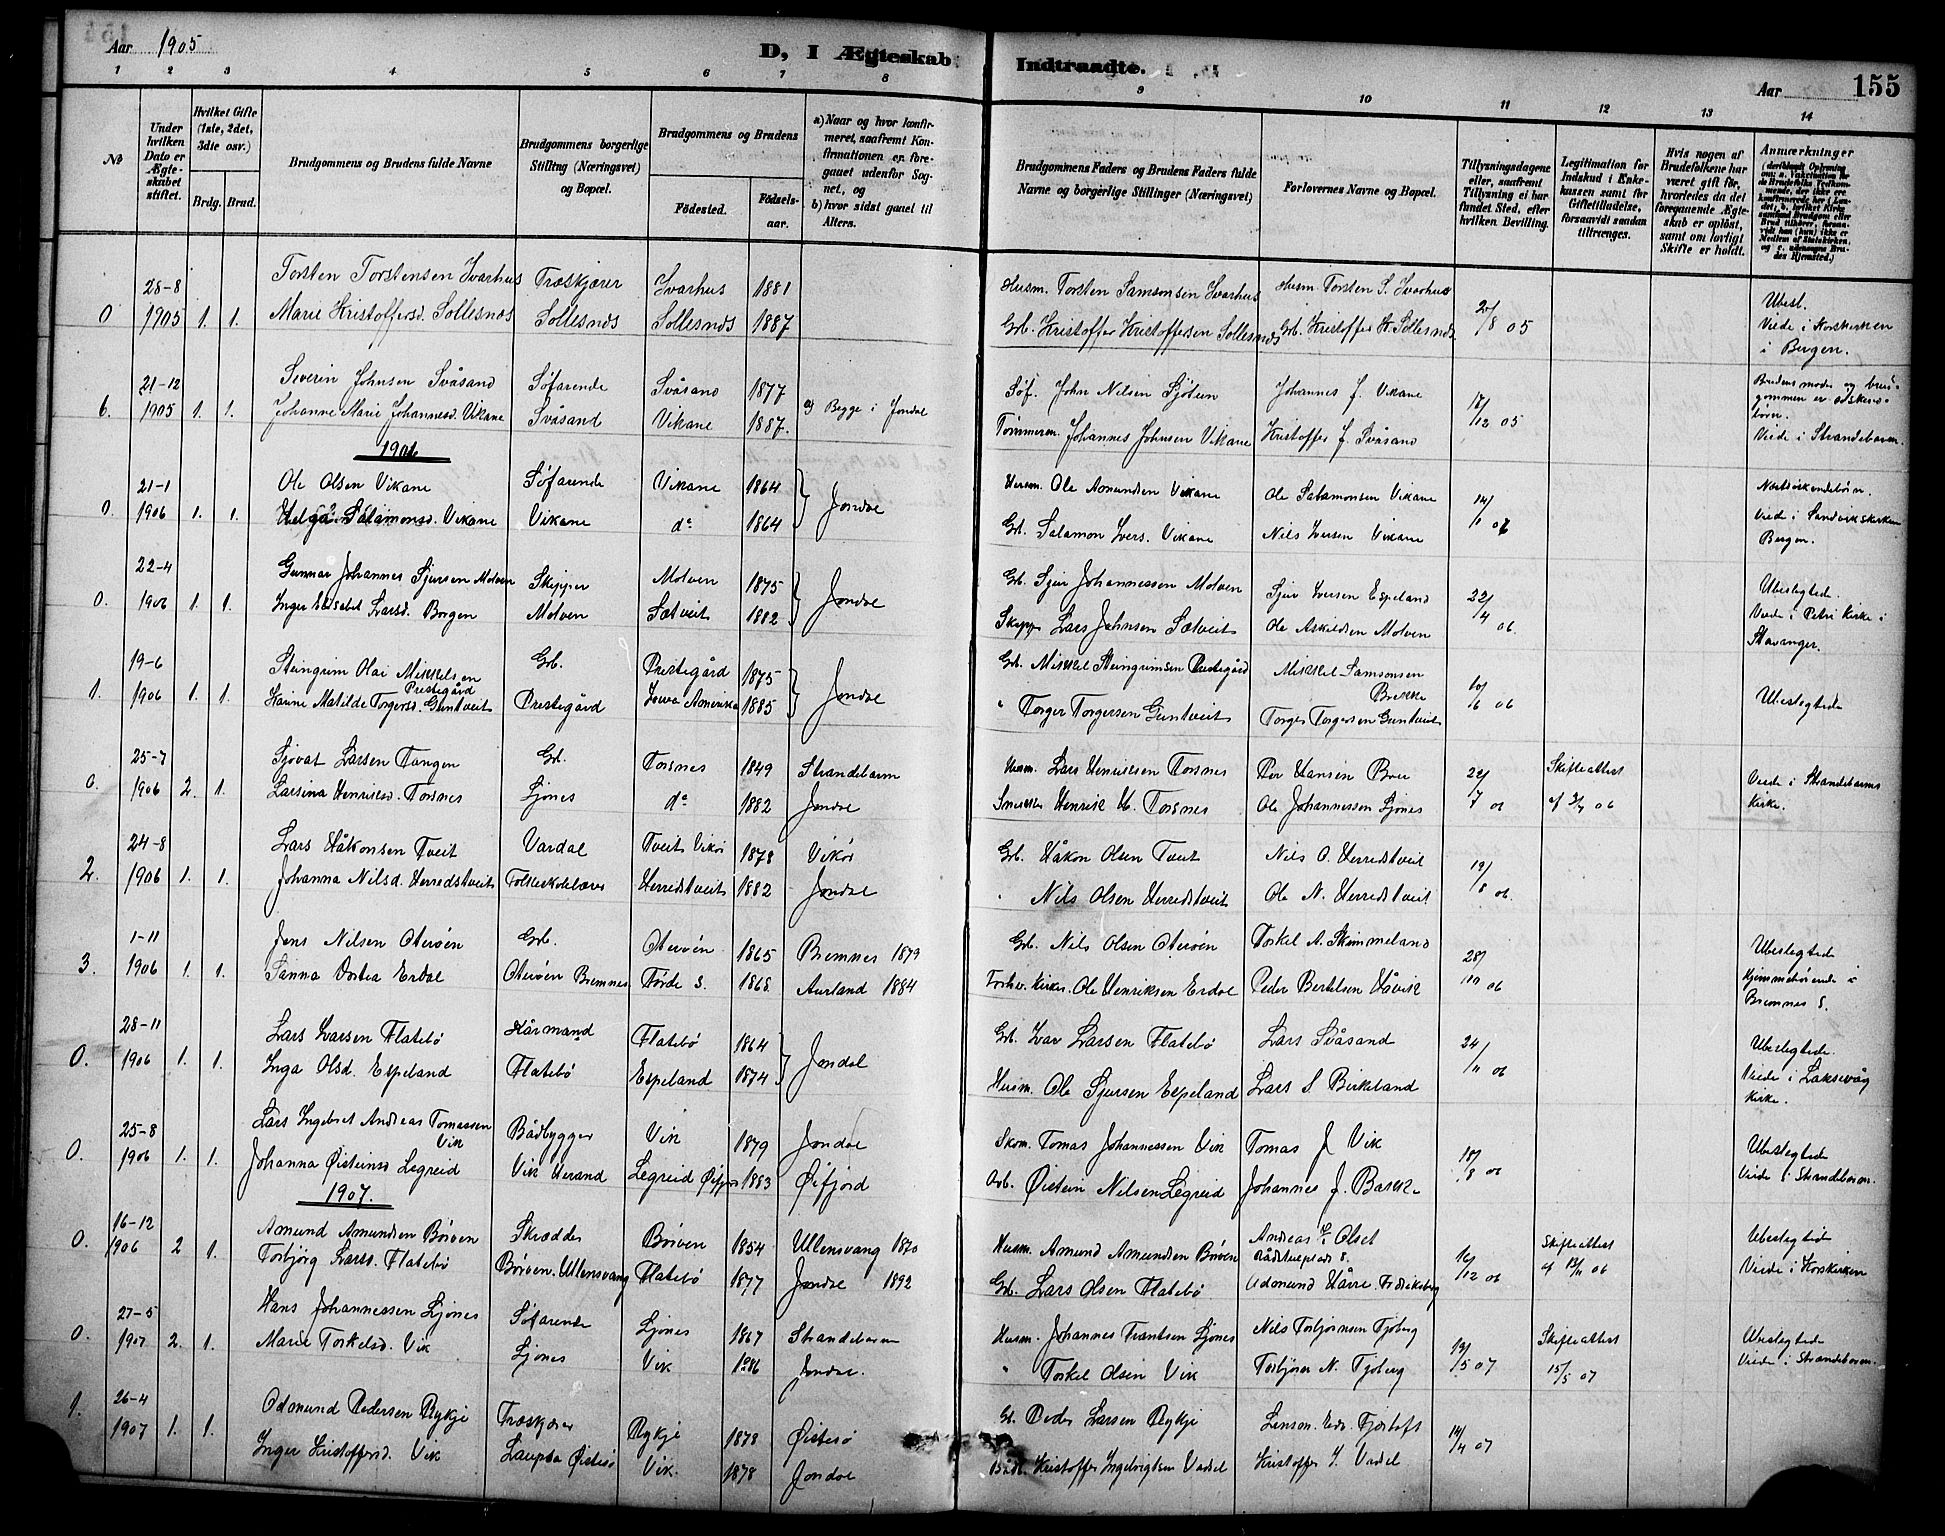 Aar 1905
D, I Ægteskab Indtraadte.
Aar
155
1 2 3 4 5 6 7 8 9 10 11 12 13 14
No
Under hvilken Dato er Ægteskabet stiftet.
Hvilket Gifte (1ste, 2det, 3die osv.)
Brdg. Brud.
Brudgommens og Brudens fulde Navne
Brudgommens borgerlige Stilling (Næringsvei) og Bopæl.
Brudgommens og Brudens
Fødested. Fødselsaar.
a) Naar og hvor konfirmeret, saafremt Konfirmationen er foregaaet udenfor Sognet, og
b) hvor sidst gaaet til Alters.
Brudgommens Faders og Brudens Faders fulde Navne og borgerlige Stillinger (Næringsvei)
Forlovernes Navne og Bopæl.
Tillysningsdagene eller, saafremt Tillysning ei har fundet Sted, efter hvilken Bevilling.
Legitimation for Indskud i Enkekassen samt for Giftetilladelse, forsaavidt saadan tiltrænges.
Hvis nogen af Brudefolkene har været gift før, hvorledes da det foregaaende Ægteskab er opløst, samt om lovligt Skifte er holdt.
Anmærkninger
28-8 Torsten Torstensen Ivarhus Træskjærer Ivarhus 1881 Husm. Torsten Samsonsen Ivarhus Husm. Torsten S. Ivarhus 20/8 05 Ubesl.
0 1905 1. 1. Marie Kristoffersd. Sollesnæs Sollesnæs Sollesnæs 1887 Grb. Kristoffer Kristoffersen Sollesnæs Grb. Kristoffer K. Sollesnæs Viede i Korskirken
i Bergen.
21-12 Severin Johnsen Svåsand Søfarende Svåsand 1877 a) Begge i Jondal Søf. John Nilsen Sjötun Johannes J. Vikane 17/12 05 Brudens moder og brudgommen er
6. 1905 1. 1. Johanne Marie Johannesd. Vikane Svåsand Vikane 1887. Tømmerm. Johannes Johnsen Vikane Kristoffer J. Svåsand Viede i Strandebarm.
1906
21-1 Ole Olsen Vikane Søfarende Vikane 1864 Jondal Husm. Ole Amundsen Vikane Ole Salamonsen Vikane 14/1 06 Næstsøskendebørn.
0. 1906 1. 1. Helga Salamonsd. Vikane Vikane do 1864 Grb. Salamon Ivers. Vikane Nils Iversen Vikane Viede i Sandvikskirken
Bergen.
22-4 Gunnar Johannes Sjursen Molven Skipper Molven 1875 Jondal Grb. Sjur Johannessen Molven Sjur Iversen Espeland 22/4 06. Ubeslegtede.
0. 1906 1. 1. Inger Elisabet Larsd. Borgen Molven Sætveit 1882 Skipp. Lars Johnsen Sætveit Ole Askildsen Molven Viede i Petri Kirke i
Stavanger.
19-6 Steingrim Olai Mikkelsen Prestegård Grb. Prestegård 1875 Jondal Grb. Mikkel Steingrimsen Prestegård Mikkel Samsonsen Brekke 10/6 06 Ubeslegtede
1. 1906 1. 1. Hanne Matilde Torgersd. Guntveit Prestegård Iowa Amerika 1885 " Torger Torgersen Guntveit Torger Torgersen Guntveit
25-7 Sjovat Larsen Tangen Grb. Torsnes 1849 Strandebarm Husm. Lars Henriksen Torsnes Per Hansen Broe 22/7 06 Skifteattest Viede i Strandebarms
0. 1906 2. 1. Larsina Henriksd. Torsnes Ljones do 1882 Jondal Henrik H. Torsnes Ole Johannessen Ljones af 3/7 06 Kirke.
24-8 Lars Håkonsen Tveit Vardal Tveit Vikør 1878 Vikør Grb. Håkon Olsen Tveit Nils O. Herredstveit 19/8 06.
2. 1906 1. 1. Johanna Nilsd. Herredstveit Folkeskolelærer Herredstveit 1882 Jondal " Nils Olsen Herredstveit Ole N. Herredstveit
1-11 Jens Nilsen Oterøen Grb. Oterøen 1865 Bremnes 1879 Grb. Nils Olsen Oterøen Torkel A. Skimmeland 28/10 06 Ubeslegtede
3. 1906 1. 1. Sanna Dortea Erdal Oterøen Bremnes Førde S. 1868. Aurland 1884 Forhv. Kirkes. Ole Henriksen Erdal Peder Bertelsen Håvik Hjemmehørende i
Bremnes S.
28-11 Lars Ivarsen Flatebø Kårmand Flatebø 1864 Jondal Grb. Ivar Larsen Flatebø Lars Svåsand 24/11 06 Ubeslegtede.
0. 1906 1. 1. Inga Olsd. Espeland Flatebø Espeland 1874 Husm. Ole Sjursen Espeland Lars S Birkeland Viede i Laksevåg
Kirke.
25-8 Lars Ingebret Andreas Tomassen Vik Bådbygger Vik 1879 Jondal Skom. Tomas Johannessen Vik Tomas J Vik 18/8 06 Ubeslegtede
0. 1906 1. 1. Johanna Øisteinsd Legreid Vik Herand Legreid Øifjord 1883 Øifjord Arb. Øistein Nilsen Legreid Johannes J. Bakke Viede i Strandebarm.
1907.
16-12 Amund Amundsen Børven Skrædder Børven 1854 Ullensvang 1870 Husm. Amund Amundsen Børven Andreas L. Olset Rådstueplads 8. 16/12 06 Skifteattest Ubeslegtede
0. 1906 2 1. Torbjörg Larsd. Flatebø Børven. Ullensvang Flatebø 1877 Jondal 1892 Grb. Lars Olsen Flatebø Udmund Hårre af 13/11 06 Viede i Korskirken
27-5 Hans Johannessen Ljones Søfarende Ljones 1867 Strandebarm Husm. Johannes Frantsen Ljones Nils Torbjørnsen Tjoberg 12/5 07 Skifteattest Ubeslegtede
0. 1907 2. 1. Marie Torkelsd. Vik Ljones Vik 1886 Jondal. " Torkel Olsen Vik Torbjørn N. Tjoberg 15/5 07 Viede i Strandebarm.
26-4 Odmund Pedersen Rykje Træskjærer Rykje 1878 Øistesø Grb. Peder Larsen Rykje Fjørtoft 14/4 07
1. 1907 1. 1. Inger Kristoffersd. Vik Laupsa Øistesø Vik. 1878 Jondal Kristoffer Ingebrigtsen Vassel Kristoffer I. Vassel